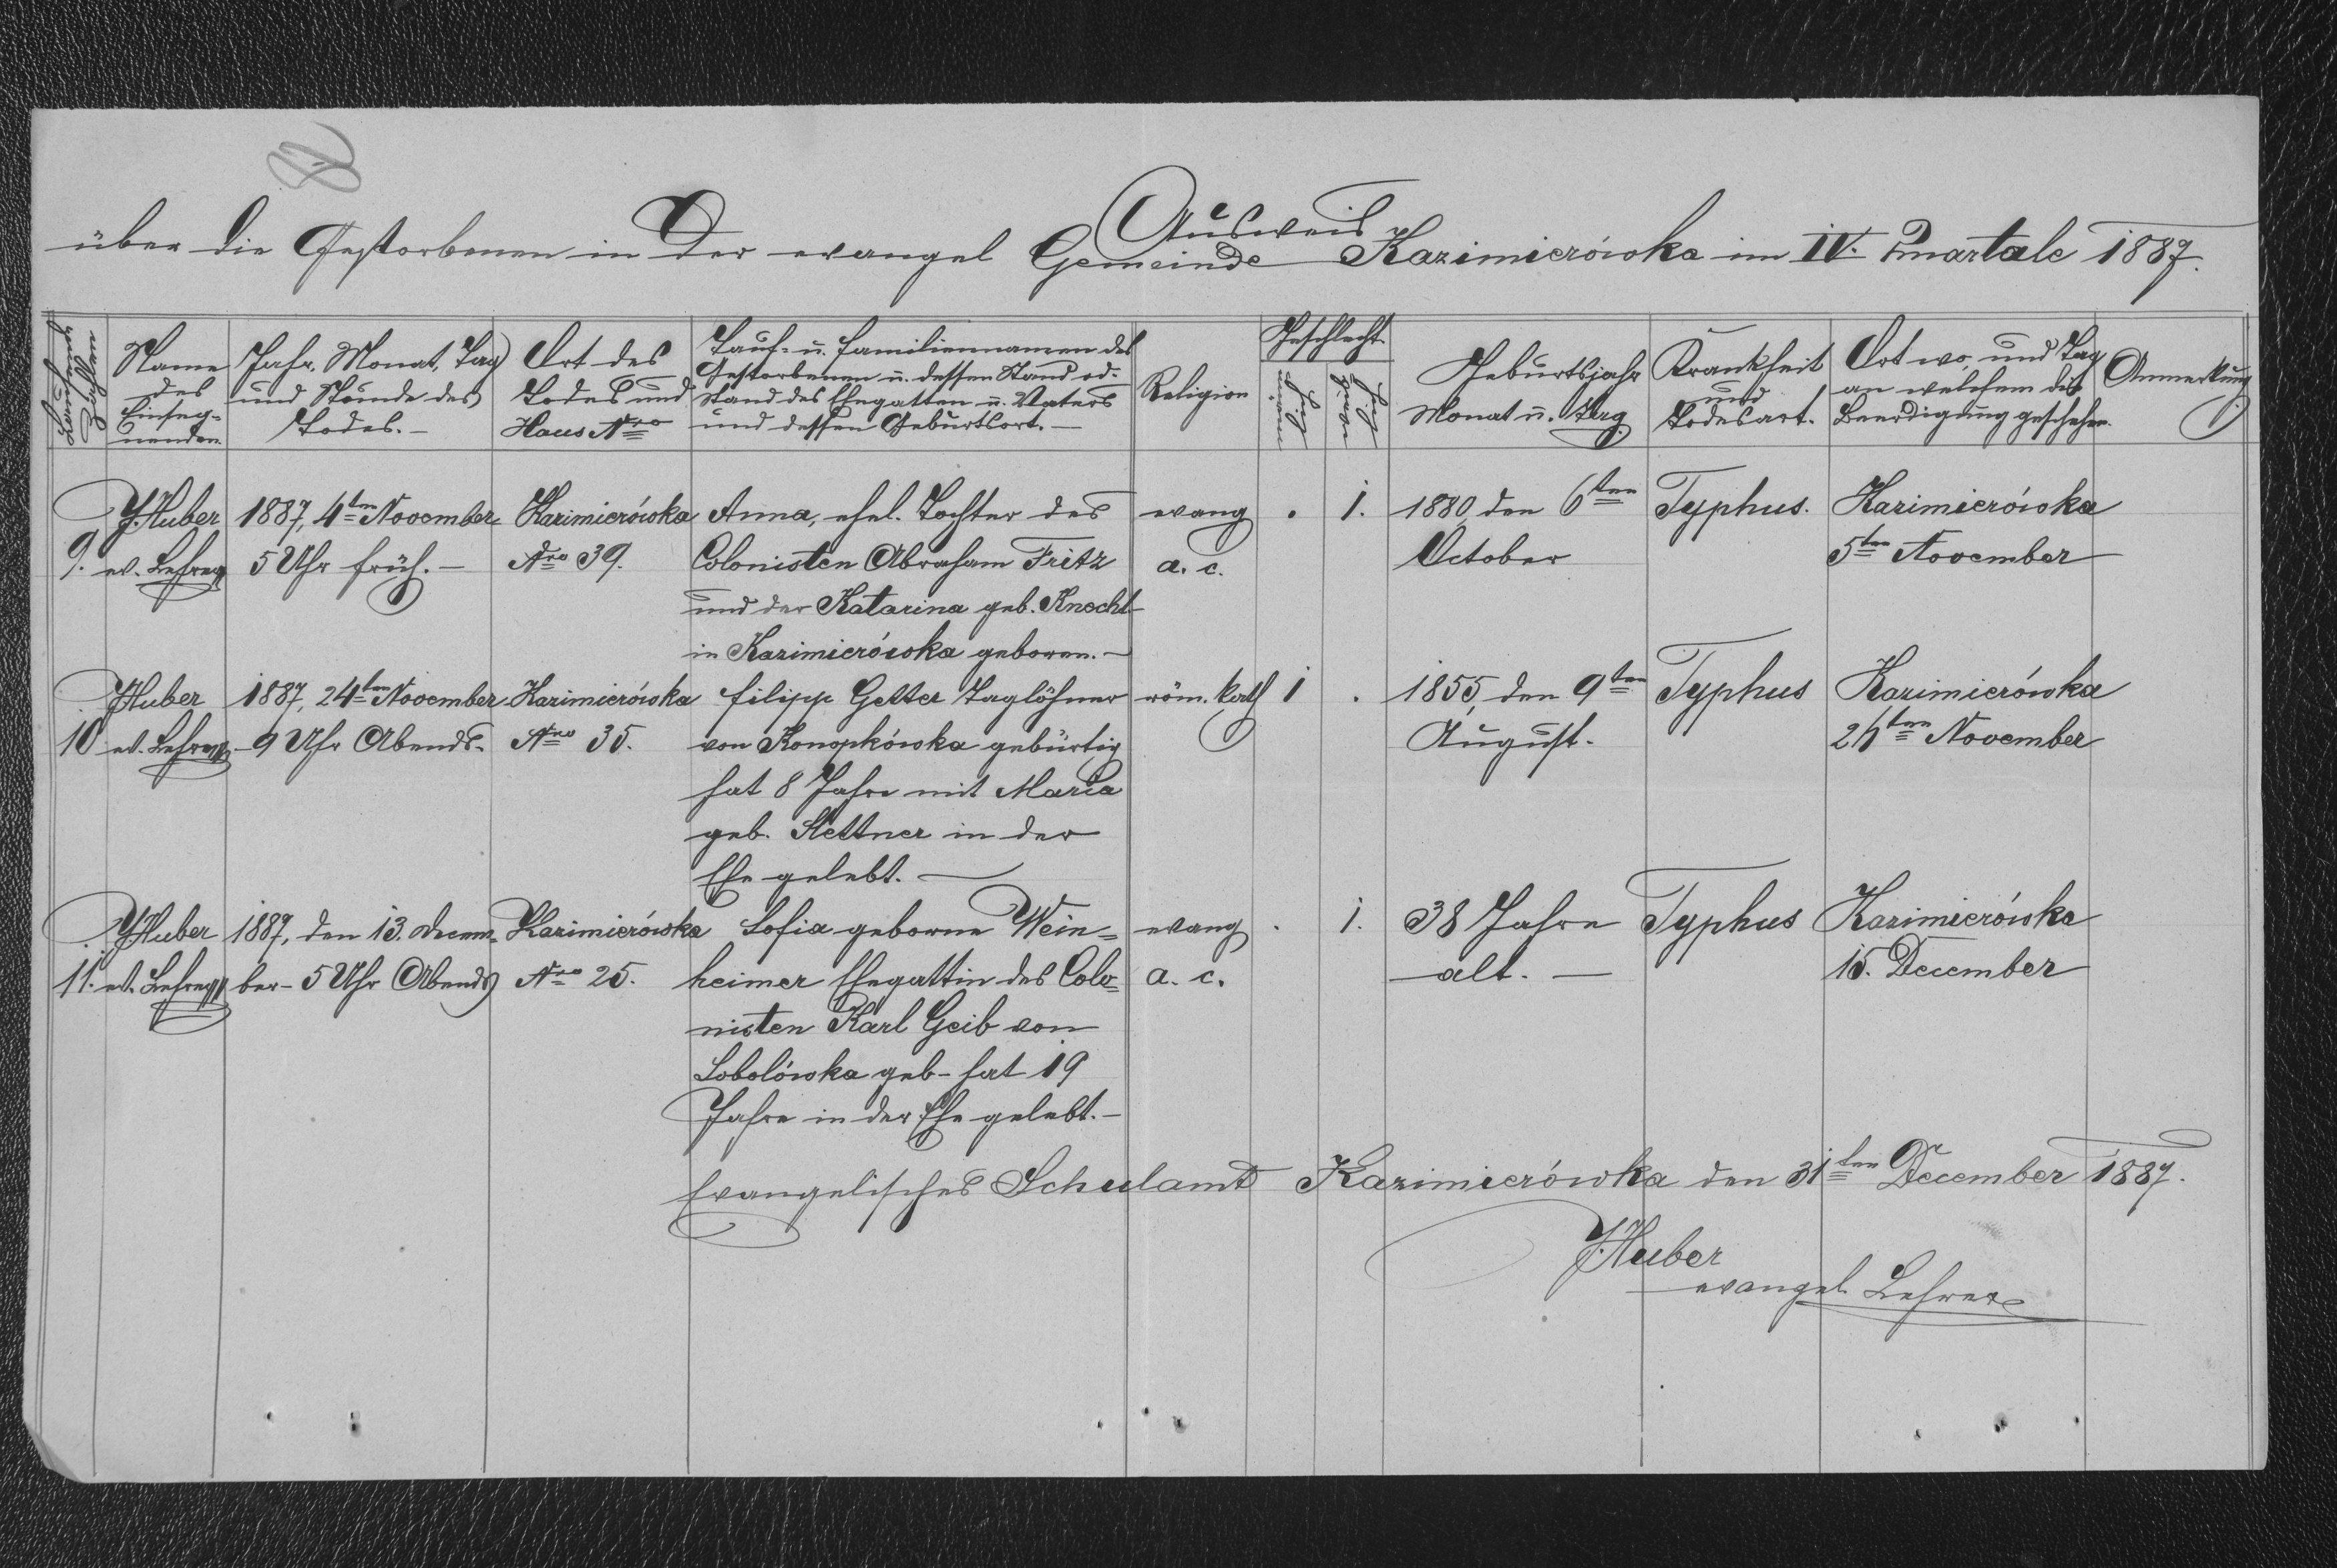 Ausweis
über die Gestorbenen in der evangel Gemeinde Kazimierówka im IV. Quartale 1887.
Laufende Zahlen
Name des Einseg-nenden
Jahr, Monat, Tag und Stunde des Todes.-
Ort des Todes und Haus Nro
Tauf- u. Familiennamen des Gestorbenen u. dessen Stand od. Stand des Ehegatten u. Vaters und dessen Geburtsort.-
Religion
Geschlecht
männlich
weiblich
Geburtsjahr Monat u. Tag
Krankheit und Todesart.
Ort wo, und Tag an welchem die Beerdigung geschehen.
Anmerkung
J. Huber 1887, 4ten November Kazimierówka Anna, ehel. Tochter des evang . 1. 1880, den 6ten Typhus. Kazimierówka
9. ev. Lehrer 5 Uhr früh.- Nro 39. Colonisten Abraham Fritz a. c. October 5ten November
und der Katarina geb. Knecht
in Kazimierówka geboren.-
J Huber 1887, 24ten November Kazimierówka Filipp Getter Taglöhner röm. kath 1 . 1855, den 9ten Typhus Kazimierówka
10 ev. Lehrer -9 Uhr Abends- Nro 35. von Konopkówka gebürtig August. 26ten November
hat 8 Jahre mit Maria
geb. Stettner in der
Ehe gelebt.-
J Huber 1887, den 13. Decem- Kazimierówka Sofia geborne Wein= evang . 1. 38 Jahre Typhus Kazimierówka
11. ev. Lehrer ber- 5 Uhr Abends Nro 25. heimer Ehegattin des Colo= a. c. alt.- 15. December
nisten Karl Geib von
Sobolówka geb- hat 19
Jahre in der Ehe gelebt.-
Evangelisches Schulamt Kazimierówka den 31ten December 1887.
J. Huber
evangel. Lehrer